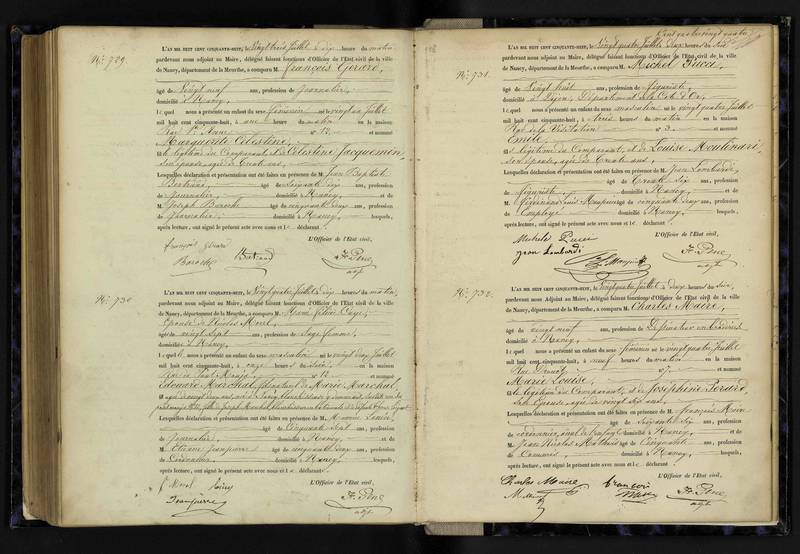 N.° 729.
L'AN MIL HUIT CENT CINQUANTE-HUIT, le Vingt trois Juillet à dix heures du matin
pardevant nous adjoint au Maire, délégué faisant fonctions d'Officier de l'Etat civil de la ville
de Nancy, département de la Meurthe, a comparu M. François Gérard,
âgé de Vingt neuf ans, profession de Journalier,
domicilié à Nancy,
lequel nous a présenté un enfant du sexe féminin né le vingt un Juillet
mil huit cent cinquante-huit, à une heure du matin en la maison
Rue Ste Anne n° 12 et nommé
Marguerite Célestine,
fille légitime du Comparant, et de Célestine Jacquemin,
son épouse, agée de Trente ans,
Lesquelles déclaration et présentation ont été faites en présence de M. Jean Baptiste
Bertrand, âgé de Cinquante six ans, profession
de Journalier, domicilié à Nancy, et de
M. Joseph Baroche âgé de cinquante deux ans, profession
de Journalier, domicilié à Nancy, lesquels,
après lecture, ont signé le présent acte avec nous et le déclarant
L'Officier de l'Etat civil,
françois Gérard
Baroche Bertrand
adjt
N.° 730
L'AN MIL HUIT CENT CINQUANTE-HUIT, le Vingt quatre Juillet à dix heures du matin,
pardevant nous adjoint au Maire, délégué faisant fonctions d'Officier de l'Etat civil de la ville
de Nancy, département de la Meurthe, a comparu M.
épouse de Nicolas Morel,
âgée de vingt Sept ans, profession de Sage femme,
domiciliée à Nancy,
laquelle nous a présenté un enfant du sexe masculin né le vingt deux Juillet
mil huit cent cinquante-huit, à onze heures du Soir, en la maison
n° 12 et nommé
Edouard Marchal, fils naturel de Marie Marchal,
Lesquelles déclaration et présentation ont été faites en présence de M.
âgé de Cinquante Sept ans, profession
de Journalier, domicilié à Nancy, et de
M. Etienne Jeanpierre âgé de cinquante deux ans, profession
de Cordonnier, domicilié à Nancy, lesquels,
après lecture, ont signé le présent acte avec nous et la déclarante
L'Officier de l'Etat civil,
Jeanpierre
adjt
Cent quatre vingt quatre
N.° 731.
L'AN MIL HUIT CENT CINQUANTE-HUIT, le Vingt quatre Juillet à deux heures du Soir
pardevant nous adjoint au Maire, délégué faisant fonctions d'Officier de l'Etat civil de la ville
de Nancy, département de la Meurthe, a comparu M. Michel Pucci,
âgé de Vingt huit ans, profession de figuriste,
domicilié à Dijon, Département de la Côte d'Or,
lequel nous a présenté un enfant du sexe masculin né le vingt quatre Juillet
mil huit cent cinquante-huit, à trois heures du matin en la maison
Rue de la Visitation n° 3 et nommé
Emile,
fils légitime du Comparant, et de Louise Moulinari,
son épouse, agée de Trente ans,
Lesquelles déclaration et présentation ont été faites en présence de M. Jean Lombardi,
âgé de Trente Six ans, profession
de figuriste, domicilié à Nancy, et de
M. Ferdinand Louis âgé de cinquante deux ans, profession
de Employé domicilié à Nancy, lesquels,
après lecture, ont signé le présent acte avec nous et le déclarant
L'Officier de l'Etat civil,
Michele Pucci
Jean Lombardi
adjt
N.° 732.
L'AN MIL HUIT CENT CINQUANTE-HUIT, le vingt quatre Juillet à deux heures du Soir,
pardevant nous Adjoint au Maire, délégué faisant fonctions d'Officier de l'Etat civil de la ville
de Nancy, département de la Meurthe, a comparu M. Charles Maire,
âgé de vingt neuf ans, profession de Dessinateur en broderies
domicilié à Nancy,
lequel nous a présenté un enfant du sexe féminin né le vingt quatre Juillet
mil huit cent cinquante-huit, à neuf heures du matin en la maison
Rue Drouot n° 27 et nommé
Marie Louise,
fille légitime du Comparant, et de Joséphine
son épouse, agée de vingt six ans,
Lesquelles déclaration et présentation ont été faites en présence de M. François Maire
âgé de Soixante Six ans, profession
de domicilié à Nancy, et de
M. Jean Nicolas Mathieu âgé de Cinquante ans, profession
de domicilié à Nancy, lesquels,
après lecture, ont signé le présent acte avec nous et le déclarant
L'Officier de l'Etat civil,
Charles Maire
francois Maire
adjt